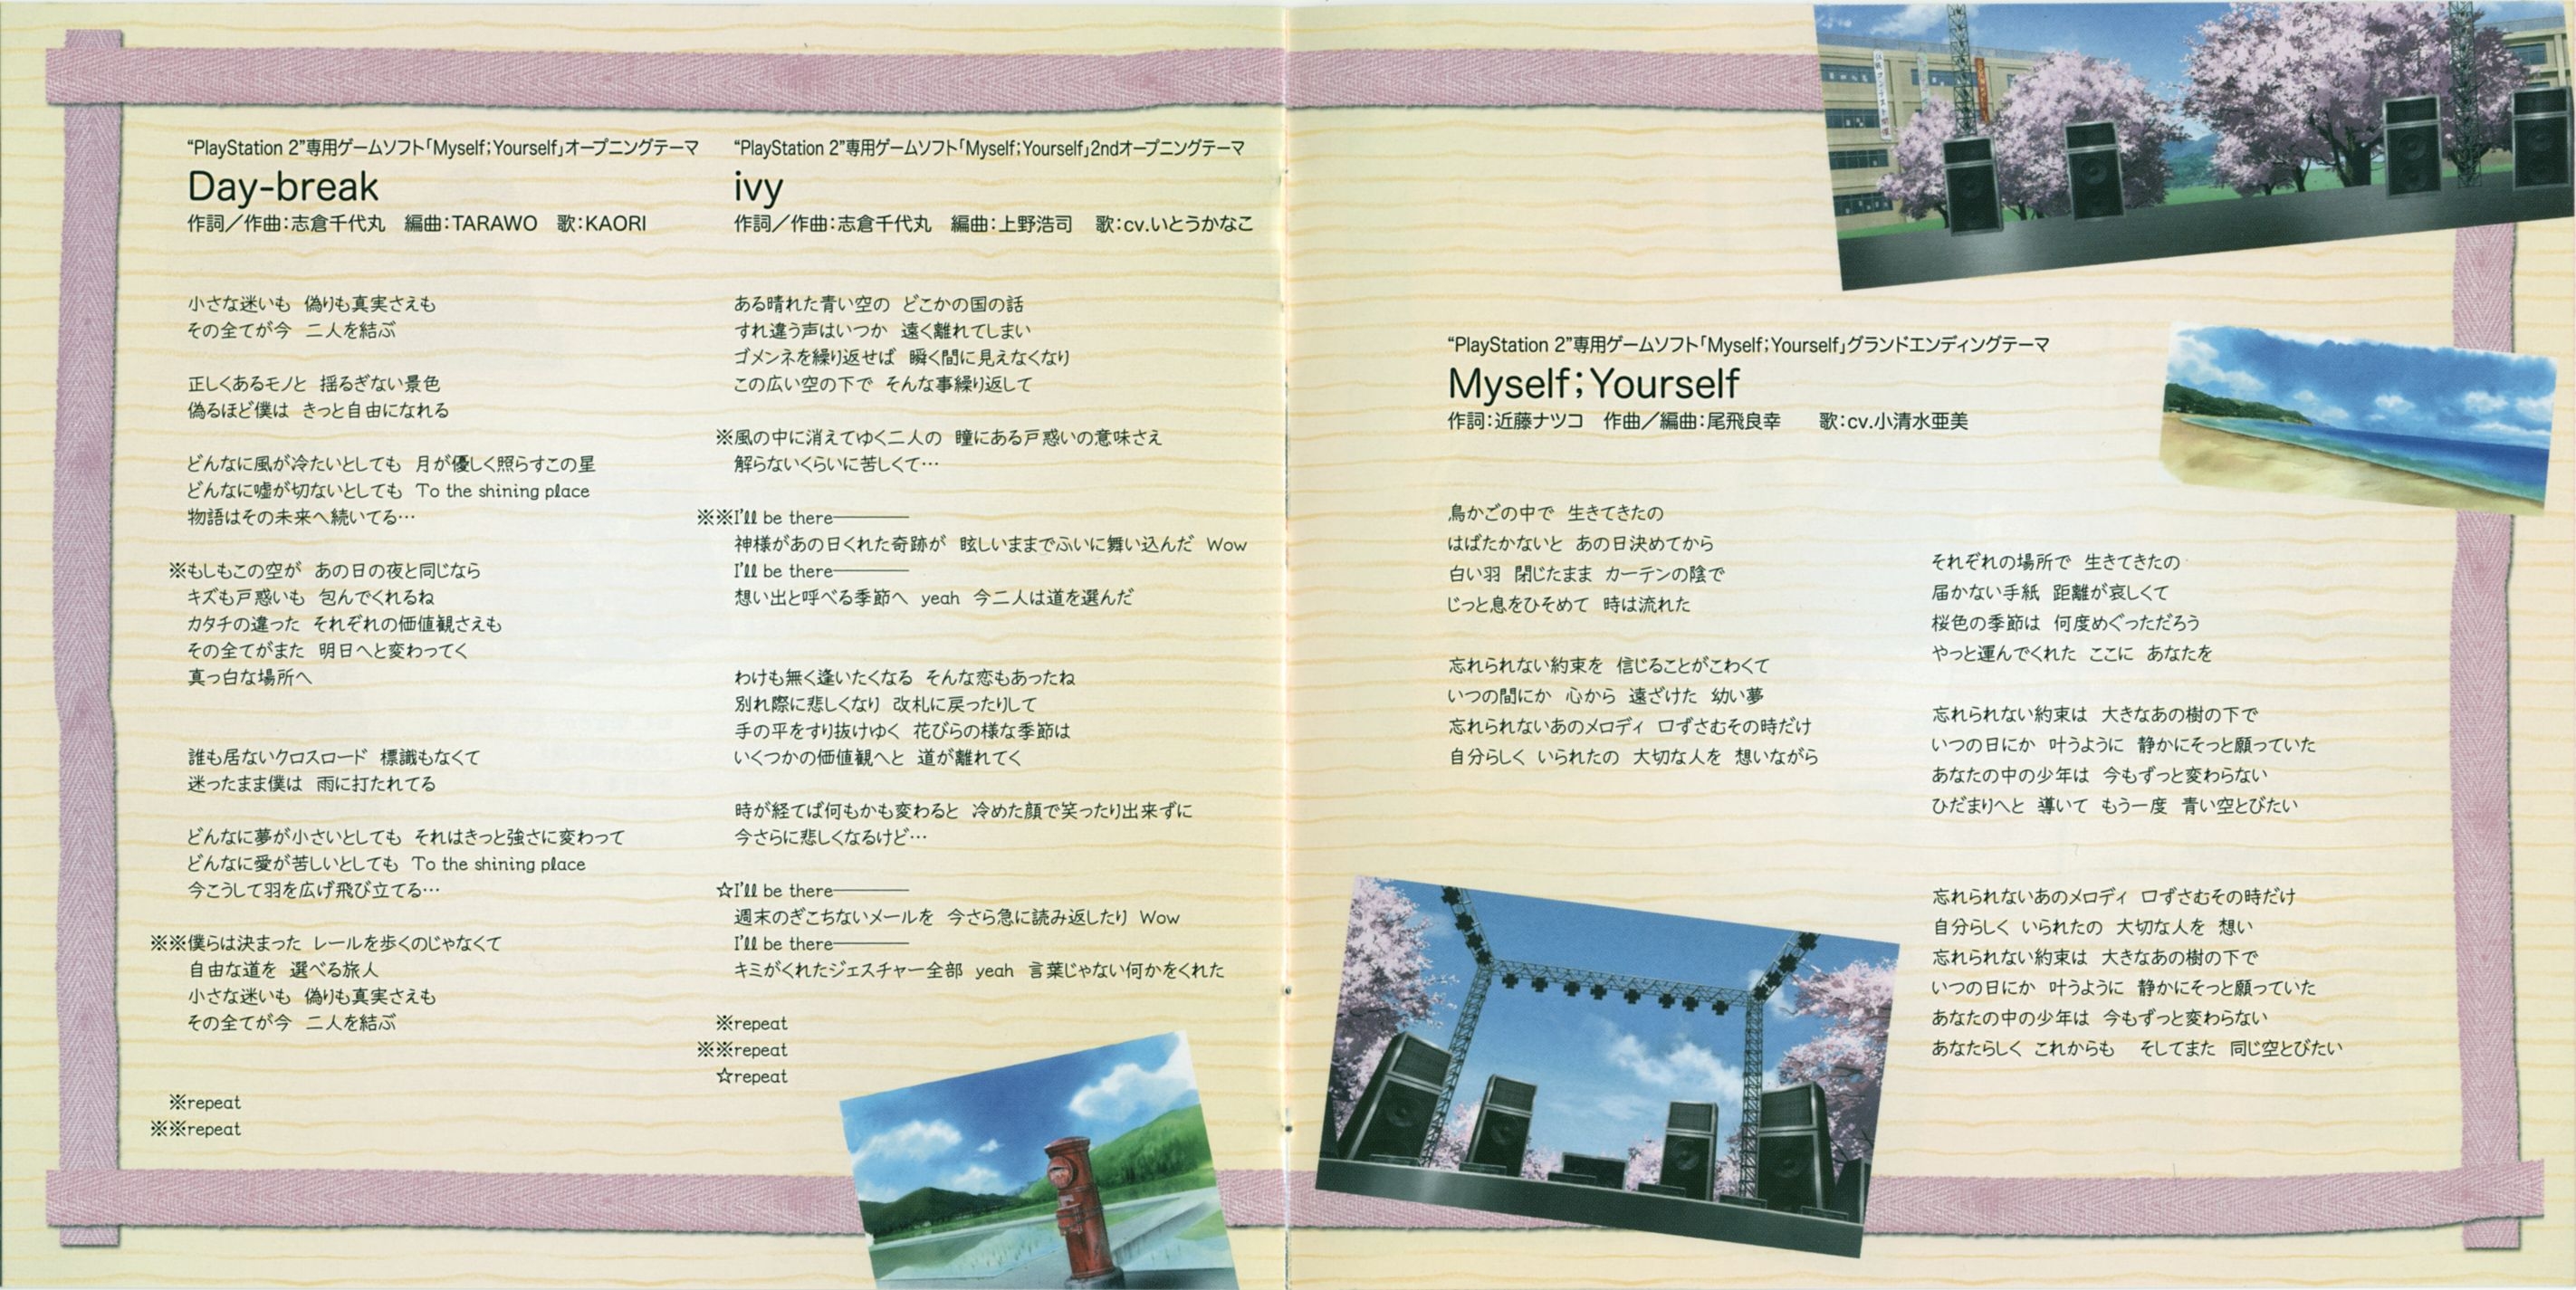 “PlayStation 2”専用ゲームソフト「Myself;Yourself」オープニングテーマ
Day-break
作詞／作曲：志倉千代丸　編曲：TARAWO　歌：KAORI
小さな迷いも　偽りも真実さえも
その全てが今　二人を結ぶ
正しくあるモノと　揺るぎない景色
偽るほど僕は　きっと自由になれる
どんなに風が冷たいとしても　月が優しく照らすこの星
どんなに嘘が切ないとしても　To the shining place
物語はその未来へ続いてる…
※もしもこの空が　あの日の夜と同じなら
キズも戸惑いも　包んでくれるね
カタチの違った　それぞれの価値観さえも
その全てがまた　明日へと変わってく
真っ白な場所へ
誰も居ないクロスロード　標識もなくて
迷ったまま僕は　雨に打たれてる
どんなに夢が小さいとしても　それはきっと強さに変わって
どんなに愛が苦しいとしても　To the shining place
今こうして羽を広げ飛び立てる…
※※僕らは決まった　レールを歩くのじゃなくて
自由な道を　選べる旅人
小さな迷いも　偽りも真実さえも
その全てが今　二人を結ぶ
※repeat
※※repeat
“PlayStation 2”専用ゲームソフト「Myself;Yourself」2ndオープニングテーマ
ivy
作詞／作曲：志倉千代丸　編曲：上野浩司　歌：cv.いとうかなこ
ある晴れた青い空の　どこかの国の話
すれ違う声はいつか　遠く離れてしまい
ゴメンネを繰り返せば　瞬く間に見えなくなり
この広い空の下で　そんな事繰り返して
※風の中に消えてゆく二人の　瞳にある戸惑いの意味さえ
解らないくらいに苦しくて…
※※I'll be there————
神様があの日くれた奇跡が　眩しいままでふいに舞い込んだ　Wow
I'll be there————
想い出と呼べる季節へ　yeah　今二人は道を選んだ
わけも無く逢いたくなる　そんな恋もあったね
別れ際に悲しくなり　改札に戻ったりして
手の平をすり抜けゆく　花びらの様な季節は
いくつかの価値観へと　道が離れてく
時が経てば何もかも変わると　冷めた顔で笑ったり出来ずに
今さらに悲しくなるけど…
☆I'll be there————
週末のぎこちないメールを　今さら急に読み返したり　Wow
I'll be there————
キミがくれたジェスチャー全部　yeah　言葉じゃない何かをくれた
※repeat
※※repeat
☆repeat
“PlayStation 2”専用ゲームソフト「Myself;Yourself」グランドエンディングテーマ
Myself;Yourself
作詞：近藤ナツコ　作曲／編曲：尾飛良幸　　歌：cv.小清水亜美
鳥かごの中で　生きてきたの
はばたかないと　あの日決めてから
白い羽　閉じたまま　カーテンの陰で
じっと息をひそめて　時は流れた
忘れられない約束を　信じることがこわくて
いつの間にか　心から　遠ざけた　幼い夢
忘れられないあのメロディ　口ずさむその時だけ
自分らしく　いられたの　大切な人を　想いながら
それぞれの場所で　生きてきたの
届かない手紙　距離が哀しくて
桜色の季節は　何度めぐっただろう
やっと運んでくれた　ここに　あなたを
忘れられない約束は　大きなあの樹の下で
いつの日にか　叶うように　静かにそっと願っていた
あなたの中の少年は　今もずっと変わらない
ひだまりへと　導いて　もう一度　青い空とびたい
忘れられないあのメロディ　口ずさむその時だけ
自分らしく　いられたの　大切な人を　想い
忘れられない約束は　大きなあの樹の下で
いつの日にか　叶うように　静かにそっと願っていた
あなたの中の少年は　今もずっと変わらない
あなたらしく　これからも　　そしてまた　同じ空とびたい